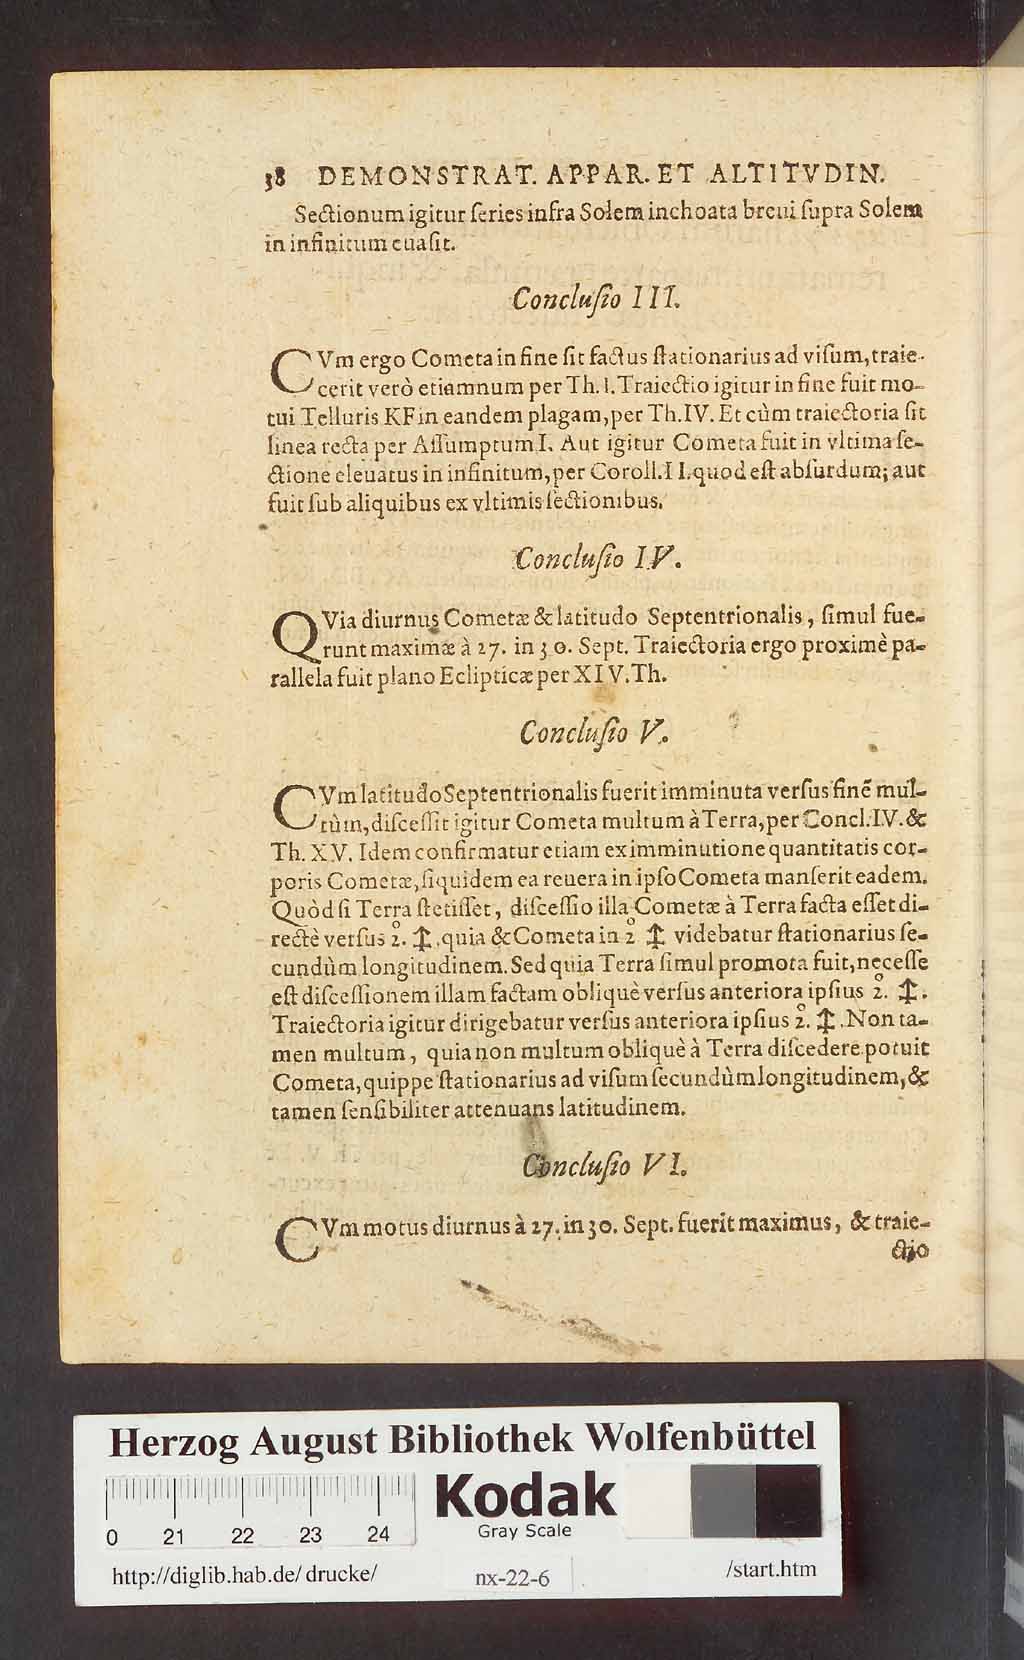 38 DEMONSTRAT. APPAR. ET ALTITVDIN.
Sectionum igitur ſeries infra Solem inchoata breui ſupra Solem
in infinitum euaſit.
Concluſio III.
CVm ergo Cometa in fine ſit factus ſtationarius ad viſum, traie-
cerit verò etiamnum per Th. I. Traiectio igitur in fine fuit mo-
tui Telluris KF in eandem plagam, per Th. IV. Et cùm traiectoria ſit
linea recta per Aſſumptum I. Aut igitur Cometa fuit in vltima ſe-
ctione eleuatus in infinitum, per Coroll. II. quod eſt abſurdum; aut
fuit ſub aliquibus ex vltimis ſectionibus.
Concluſio IV.
QVia diurnus Cometæ & latitudo Septentrionalis, ſimul fue-
runt maximæ à 27. in 30. Sept. Traiectoria ergo proximè pa-
rallela fuit plano Eclipticæ per XIV. Th.
Concluſio V.
CVm latitudo Septentrionalis fuerit imminuta verſus finẽ mul-
tùm, diſceſſit igitur Cometa multum à Terra, per Concl. IV. &
Th. XV. Idem confirmatur etiam ex imminutione quantitatis cor-
poris Cometæ, ſiquidem ea reuera in ipſo Cometa manſerit eadem.
Quòd ſi Terra ſtetiſſet, diſceſſio illa Cometæ à Terra facta eſſet di-
rectè verſus 2°. ♐. quia & Cometa in 2° ♐ videbatur ſtationarius ſe-
cundùm longitudinem. Sed quia Terra ſimul promota fuit, neceſſe
eſt diſceſſionem illam factam obliquè verſus anteriora ipſius 2°. ♐.
Traiectoria igitur dirigebatur verſus anteriora ipſius 2°. ♐. Non ta-
men multum, quia non multum obliquè à Terra diſcedere potuit
Cometa, quippe ſtationarius ad viſum ſecundùm longitudinem, &
tamen ſenſibiliter attenuans latitudinem.
Concluſio VI.
CVm motus diurnus à 27. in 30. Sept. fuerit maximus, & traie-
ctio
Herzog August Bibliothek Wolfenbüttel
0 21 22 23 24
Kodak
Gray Scale
http://diglib.hab.de/drucke/ nx-22-6 /start.htm